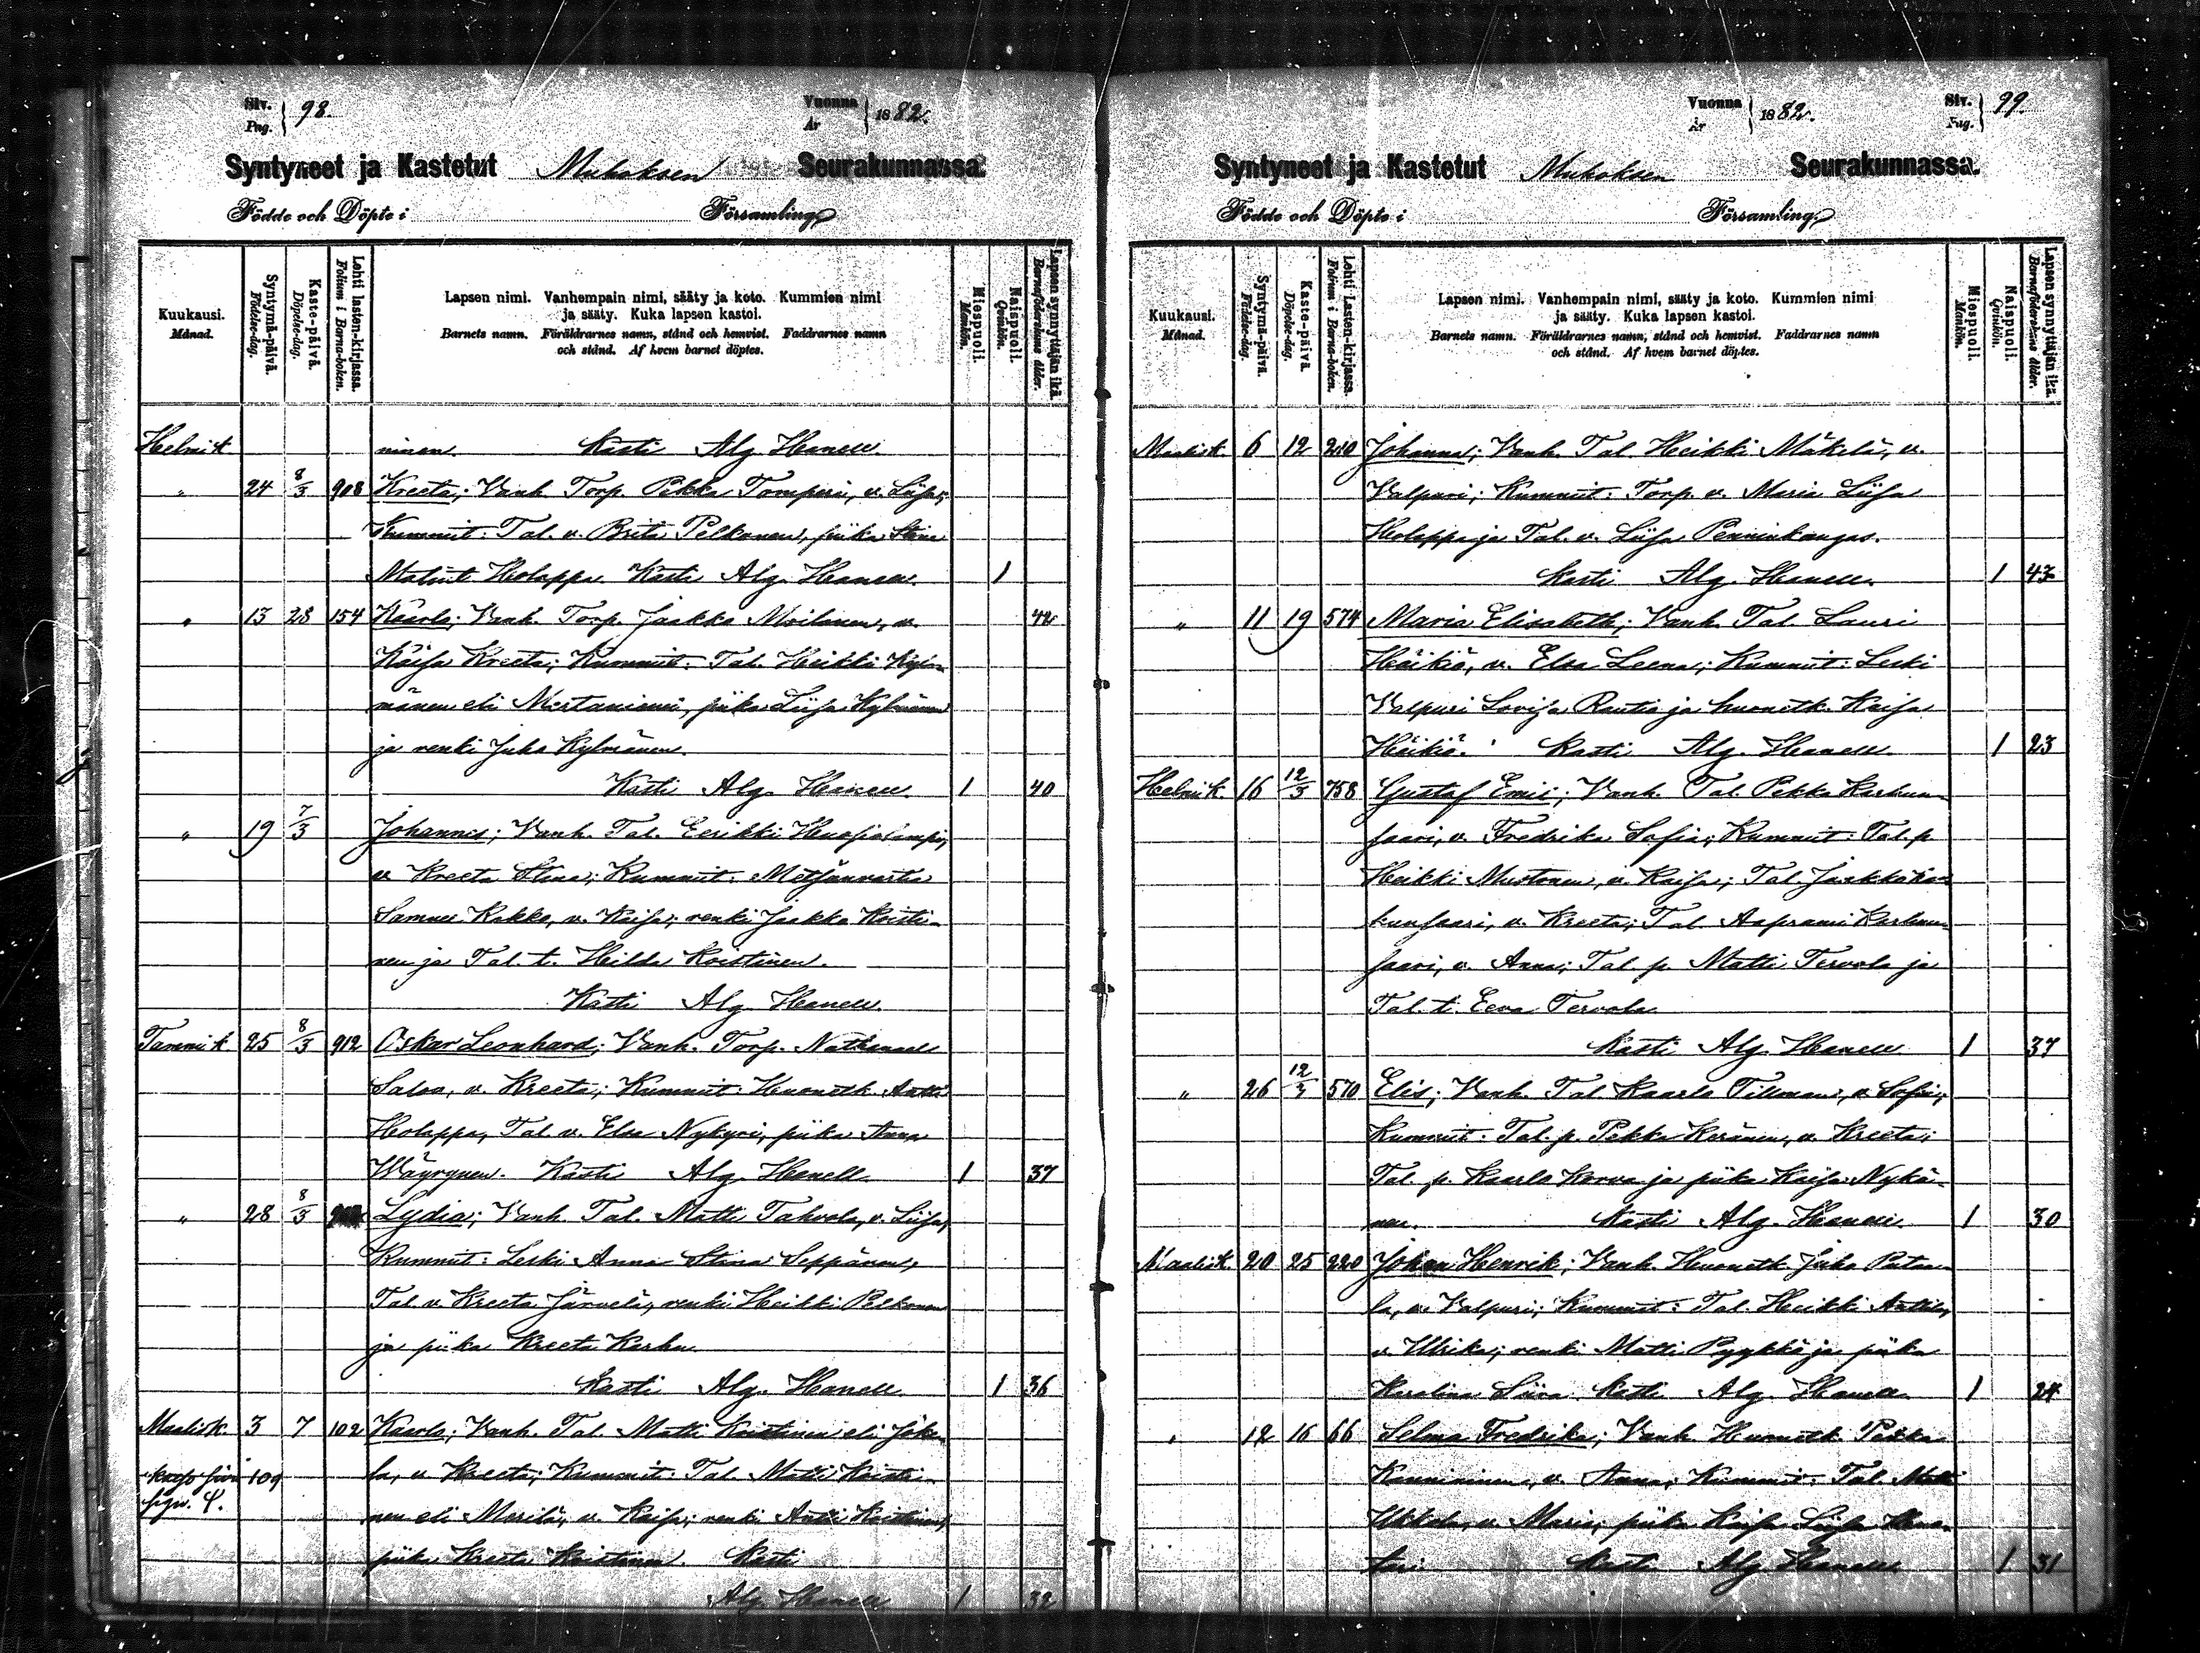 Siv. 98.
Pag.
Vuonna 1882.
År
Syntyneet ja Kastetut Muhoksen Seurakunnassa.
Födde och Döpte i Församling
Kuukausi. Månad.
Syntymä-päivä. Födelse-dag.
Kaste-päivä. Döpelse-dag.
Lehti lasten-kirjassa. Folium i Barna-boken.
Lapsen nimi. Vanhempain nimi, sääty ja koto. Kummien nimi
ja sääty. Kuka lapsen kastoi.
Barnets namn. Föräldrarnes namn, stånd och hemvist. Faddrarnes namn
och stånd. Af hvem barnet döptes.
Miespuoli. Mankön.
Naispuoli. Qvinkön.
Lapsen synnyttäjän ikä. Barnaföderskans ålder.
Helmik. ninen Kasti Alg. Hanell
" 24 8/3 908 Kreeta; Vanh. Torp. Pekka Tomperi, v. Liisa;
Kummit: Tal. v. Brita Pelkonen, piika Stina
Matint. Holappa. Kasti Alg. Hanell. 1
" 13 28 154 Kaarlo; Vanh. Torp. Jaakko Moilanen, v. 42
Kaisa Kreeta; Kummit: Tal. Heikki Kylmä-
mänen eli Mertaniemi, piika Liisa Kylmänen
ja renki Juho Kylmänen.
Kasti Alg. Hanell. 1 40
" 19 7/3 Johannes; Vanh. Tal. Eerikki Huosiolampi,
v. Kreeta Stina; Kummit: Metsänvartia
Samuel Kokko, v. Kaisa; renki Jaakko Koisti-
nen ja Tal. t. Hilda Koistinen.
Kasti Alg. Hanell.
Tammik. 25 8/3 912 Oskar Leonhard; Vanh. Torp. Nathanael
Saloo, v. Kreeta; Kummit: Huonetk. Antti
Holappa, Tal. v. Elsa Nykyri, piika Anna
Wäyrynen. Kasti Alg. Hanell 1 37
" 28 8/3 Lydia; Vanh. Tal. Matti Tahvola, v. Liisa,
Kummit: Leski Anna Stina Seppänen,
Tal. v. Kreeta Järvelä, renki Heikki Pelkonen
ja piika Kreeta Karhu
Kasti Alg. Hanell 1 36
Maalisk. 3 7 102 Kaarlo; Vanh. Tal. Matti Koistinen eli Joke-
109 la, v. Kreeta; Kummit: Tal. Matti Koisti-
nen eli Merilä, v. Kaisa; renki Antti Koistinen,
piika Kreeta Koistinen. Kasti
Alg. Hanell 1 32
Vuonna 1882.
År
Siv. 99.
Pag.
Syntyneet ja Kastetut Muhoksen Seurakunnassa.
Födde och Döpte i Församling
Kuukausi. Månad.
Syntymä-päivä. Födelse-dag.
Kaste-päivä. Döpelse-dag.
Lehti Lasten-kirjassa. Folium i Barna-boken.
Lapsen nimi. Vanhempain nimi, sääty ja koto. Kummien nimi
ja sääty. Kuka lapsen kastoi.
Barnets namn. Föräldrarnes namn, stånd och hemvist. Faddrarnes namn
och stånd. Af hvem barnet döptes.
Miespuoli. Mankön.
Naispuoli. Qvinkön.
Lapsen synnyttäjän ikä. Barnaföderskans ålder.
Maalisk. 6 12 210 Johanna; Vanh. Tal. Heikki Mäkelä, v.
Valpuri; Kummit: Torp. v. Maria Liisa
Holappa ja Tal. v. Liisa Penninkangas.
Kasti Alg. Hanell. 1 43
" 11 19 574 Maria Elisabeth; Vanh. Tal. Lauri
Häikiö, v. Elsa Leena; Kummit: Leski
Valpuri Lovisa Rautio ja huonetk. Kaisa
Häikiö. Kasti Alg. Hanell 1 23
Helmik. 16 12/3 758 Gustaf Emil; Vanh. Tal. Pekka Karhun-
saari, v. Fredrika Sofia; Kummit: Tal. p.
Heikki Mustonen, v. Kaisa; Tal. Jaakko Kar-
hunsaari, v. Kreeta; Tal. Aaprami Karhun-
saari, v. Anna; Tal. p. Matti Tervola ja
Tal. t. Eeva Tervola
Kasti Alg. Hanell 1 37
" 26 12/3 570 Elis; Vanh. Tal. Kaarlo Tillman, v. Sofia;
Kummit: Tal. p. Pekka Keränen, v. Kreeta;
Tal. p. Kaarlo Korva ja piika Kaisa Nykä-
nen. Kasti Alg. Hanell 1 30
Maalisk. 20 25 220 Johan Henrik; Vanh. Huonetk. Juho Pata-
la, v. Valpuri; Kummit: Tal. Heikki Anttila,
v. Ulrika; renki Matti Pyykkö ja piika
Karolina Siira. Kasti Alg. Hanell 1 24
" 12 16 66 Selma Fredrika; Vanh. Huonetk. Pekka
Kanniainen, v. Anna; Kummit: Tal. Matti
Ukkola, v. Maria; piika Kaisa Liisa
Kasti Alg. Hanell 1 31